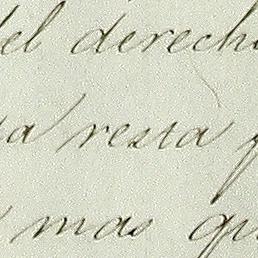 del derecho
ta resta
mas que